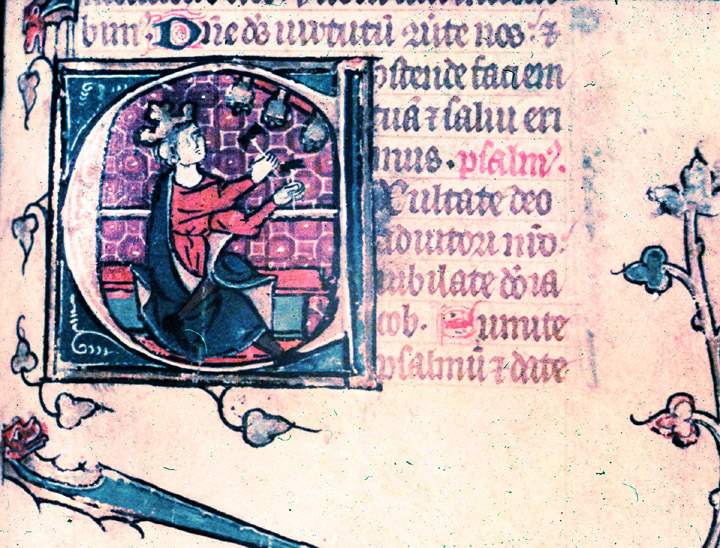 bim. Dñe ds̄ uirtutū ꝯuˀte nos. ⁊
ostende faciem
tuā ⁊ salui eri
mus. psalmꝰ.
EXultate deo
adiutori nr̄o.
iubilate dō ia
cob. Sumite
psalmū ⁊ date